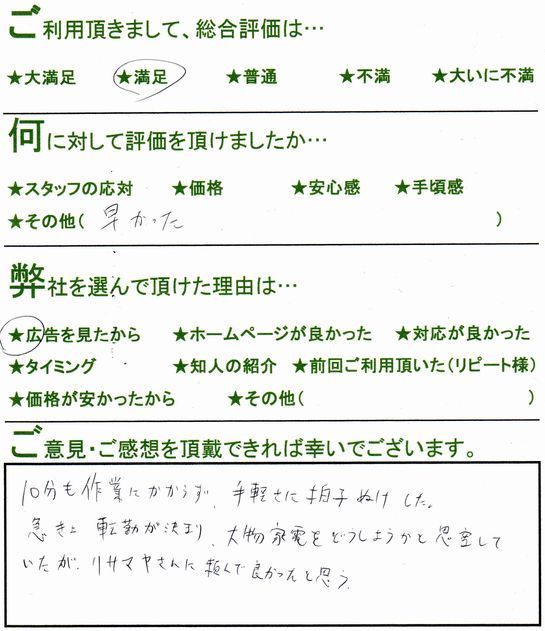 ご利用頂きまして、総合評価は…
★大満足 ★満足 ★普通 ★不満 ★大いに不満
何に対して評価を頂けましたか…
★スタッフの応対 ★価格 ★安心感 ★手頃感
★その他( 早かった )
弊社を選んで頂けた理由は…
★広告を見たから ★ホームページが良かった ★対応が良かった
★タイミング ★知人の紹介 ★前回ご利用頂いた(リピート様)
★価格が安かったから ★その他( )
ご意見・ご感想を頂戴できれば幸いでございます。
10分も作業にかからず、手軽さに拍子ぬけした。
急きょ転勤が決まり、大物家電をどうしようかと思案して
いたが、リサマヤさんに頼んで良かったと思う。